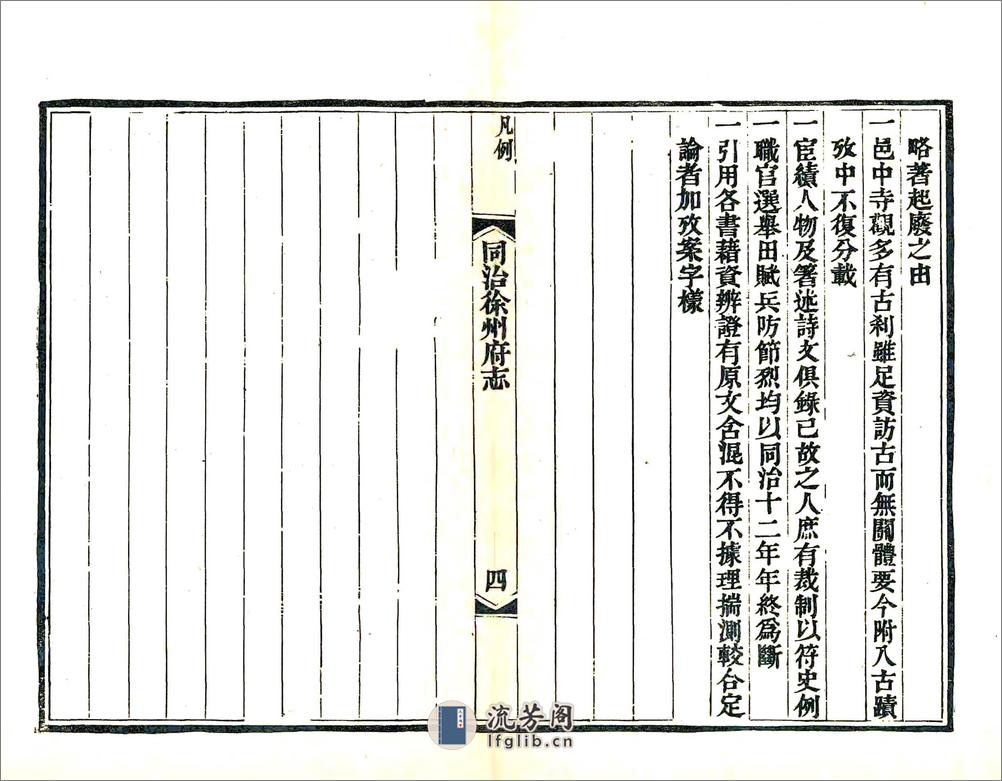 略著起廢之由
一邑中寺觀多有古刹雖足資訪古而無關體要今附入古蹟
攷中不復分載
一宦績人物及箸述詩文俱錄已故之人庶有裁制以符史例
一職官選舉田賦兵防節烈均以同治十二年年終爲斷
一引用各書藉資辨證有原文含混不得不據理揣測較合定
論者加攷案字樣
凡例
同治徐州府志
四
流芳阁
lfglib.cn